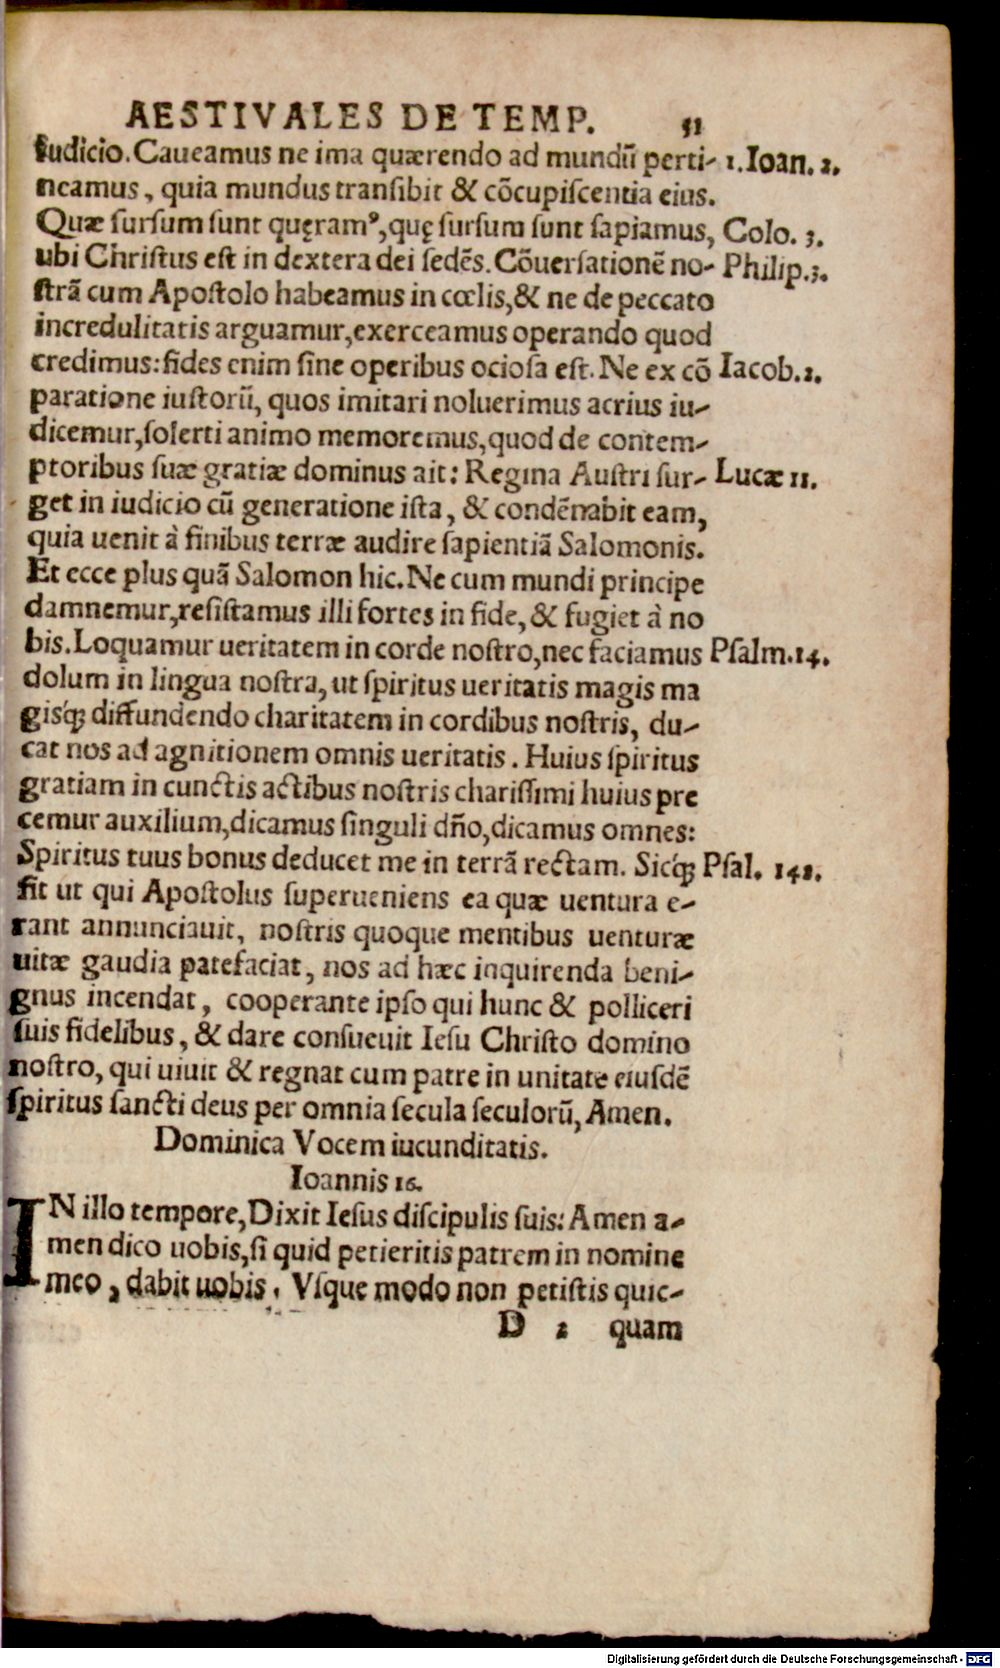 AESTIVALES DE TEMP. 51
iudicio. Caueamus ne ima quærendo ad mundũ perti- 1. Ioan. 2.
neamus, quia mundus transibit & cõcupiscentia eius.
Quæ sursum sunt quęramꝰ, quę sursum sunt sapiamus, Colo. 3.
ubi Christus est in dextera dei sedẽs. Cõuersationẽ no- Philip. 3.
strã cum Apostolo habeamus in cœlis, & ne de peccato
incredulitatis arguamur, exerceamus operando quod
credimus: fides enim sine operibus ociosa est. Ne ex cõ Iacob. 2.
paratione iustorũ, quos imitari noluerimus acrius iu-
dicemur, solerti animo memoremus, quod de contem-
ptoribus suæ gratiæ dominus ait: Regina Austri sur- Lucæ 11.
get in iudicio cũ generatione ista, & condẽnabit eam,
quia uenit à finibus terræ audire sapientiã Salomonis.
Et ecce plus quã Salomon hic. Ne cum mundi principe
damnemur, resistamus illi fortes in fide, & fugiet à no
bis. Loquamur ueritatem in corde nostro, nec faciamus Psalm. 14.
dolum in lingua nostra, ut spiritus ueritatis magis ma
gisq́; diffundendo charitatem in cordibus nostris, du-
cat nos ad agnitionem omnis ueritatis. Huius spiritus
gratiam in cunctis actibus nostris charissimi huius pre
cemur auxilium, dicamus singuli dño, dicamus omnes:
Spiritus tuus bonus deducet me in terrã rectam. Sicq́; Psal. 142.
fit ut qui Apostolus superueniens ea quæ uentura e-
rant annunciauit, nostris quoque mentibus uenturæ
uitæ gaudia patefaciat, nos ad hæc inquirenda beni-
gnus incendat, cooperante ipso qui hunc & polliceri
suis fidelibus, & dare consueuit Iesu Christo domino
nostro, qui uiuit & regnat cum patre in unitate eiusdẽ
spiritus sancti deus per omnia secula seculorũ, Amen.
Dominica Vocem iucunditatis.
Ioannis 16.
IN illo tempore, Dixit Iesus discipulis suis: Amen a-
men dico uobis, si quid petieritis patrem in nomine
meo, dabit uobis. Vsque modo non petistis quic-
D 2 quam
Digitalisierung gefördert durch die Deutsche Forschungsgemeinschaft - DFG